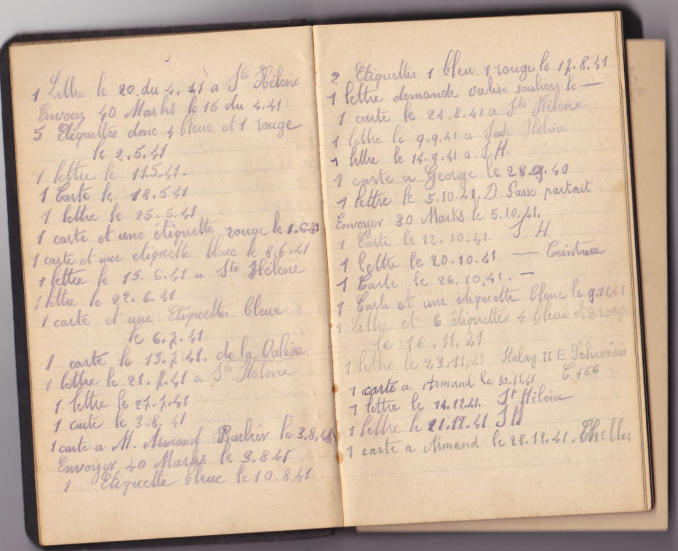 1 Lettre le 20 du 4.41 a Ste Hélène
Envoyez 40 Marks le 16 du 4.41
5 Etiquettes donc 4 bleue et 1 rouge
le 2.5.41
1 lettre le 11.5.41.
1 Carte le 18.5.41
1 lettre le 25.5.41
1 carte et une étiquette rouge le 1.6.41
1 carte et une étiquette bleue le 8.6.41
1 lettre le 15.6.41 a Ste Hélène
1 lettre le 22.6.41
1 carte et une Etiquettes bleue
le 6.7.41
1 carte le 13.7.41. de la Valise
1 lettre le 21.7.41 a Ste Hélène
1 lettre le 27.7.41
1 carte le 3.8.41
1 carte a M. Armand Barbier le 3.8.41
Envoyer 40 Marks le 9.8.41
1 Etiquette bleue le 10.8.41
2 Etiquettes 1 bleu. 1 rouge le 17.8.41
1 lettre demande valise souliers le —
1 carte le 24.8.41 a Ste Hélène
1 lettre le 9.9.41 a Hélène
1 lettre le 14.9.41 a S.H.
1 carte a George le 28.9.40
1 lettre le 5.10.41, D Passe partout
Envoyer 30 Marks le 5.10.41,
1 Carte le 12.10.41. S.H
1 lettre le 20.10.41 — Ceinture
1 Carte le 26.10.41. —
1 Carte et une étiquette bleue le 9.11.41
1 Lettre et 6 étiquette 4 bleue et 2 rouge
le 16.11.41
1 lettre le 23.11.41 Stalag II E Schwerin
C 456
1 carte a Armand le 30.11.41
1 lettre le 14.12.41. St Hélène
1 lettre le 21.12.41 SH
1 carte a Armand le 28.12.41. Chelles